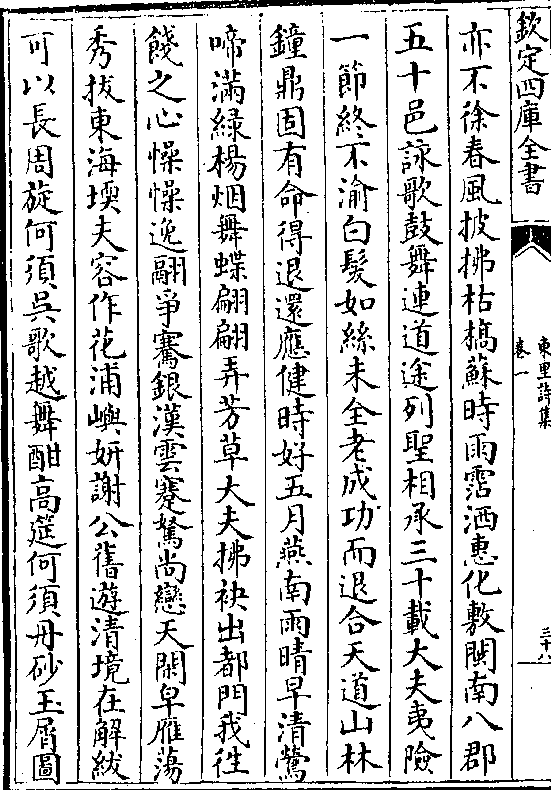 欽定四庫全書
東里詩集
卷一
三十八
亦不徐春風披拂枯槁蘇時雨霑洒惠化敷閩南八郡
五十邑詠歌鼓舞連道途列聖相承三十載大夫夷險
一節終不渝白髮如絲未全老成功而退合天道山林
鐘鼎固有命得退還應健時好五月燕南雨晴早清鶯
啼滿緑楊烟舞蝶翩翩弄芳草大夫拂袂出都門我往
餞之心慅慅逸翮爭騫銀漢雲蹇駑尚戀天閑皁雁蕩
秀拔東海堧夫容作花浦嶼妍謝公舊遊清境在解紱
可以長周旋何須吳歌越舞酣高筵何須丹砂玉屑圖